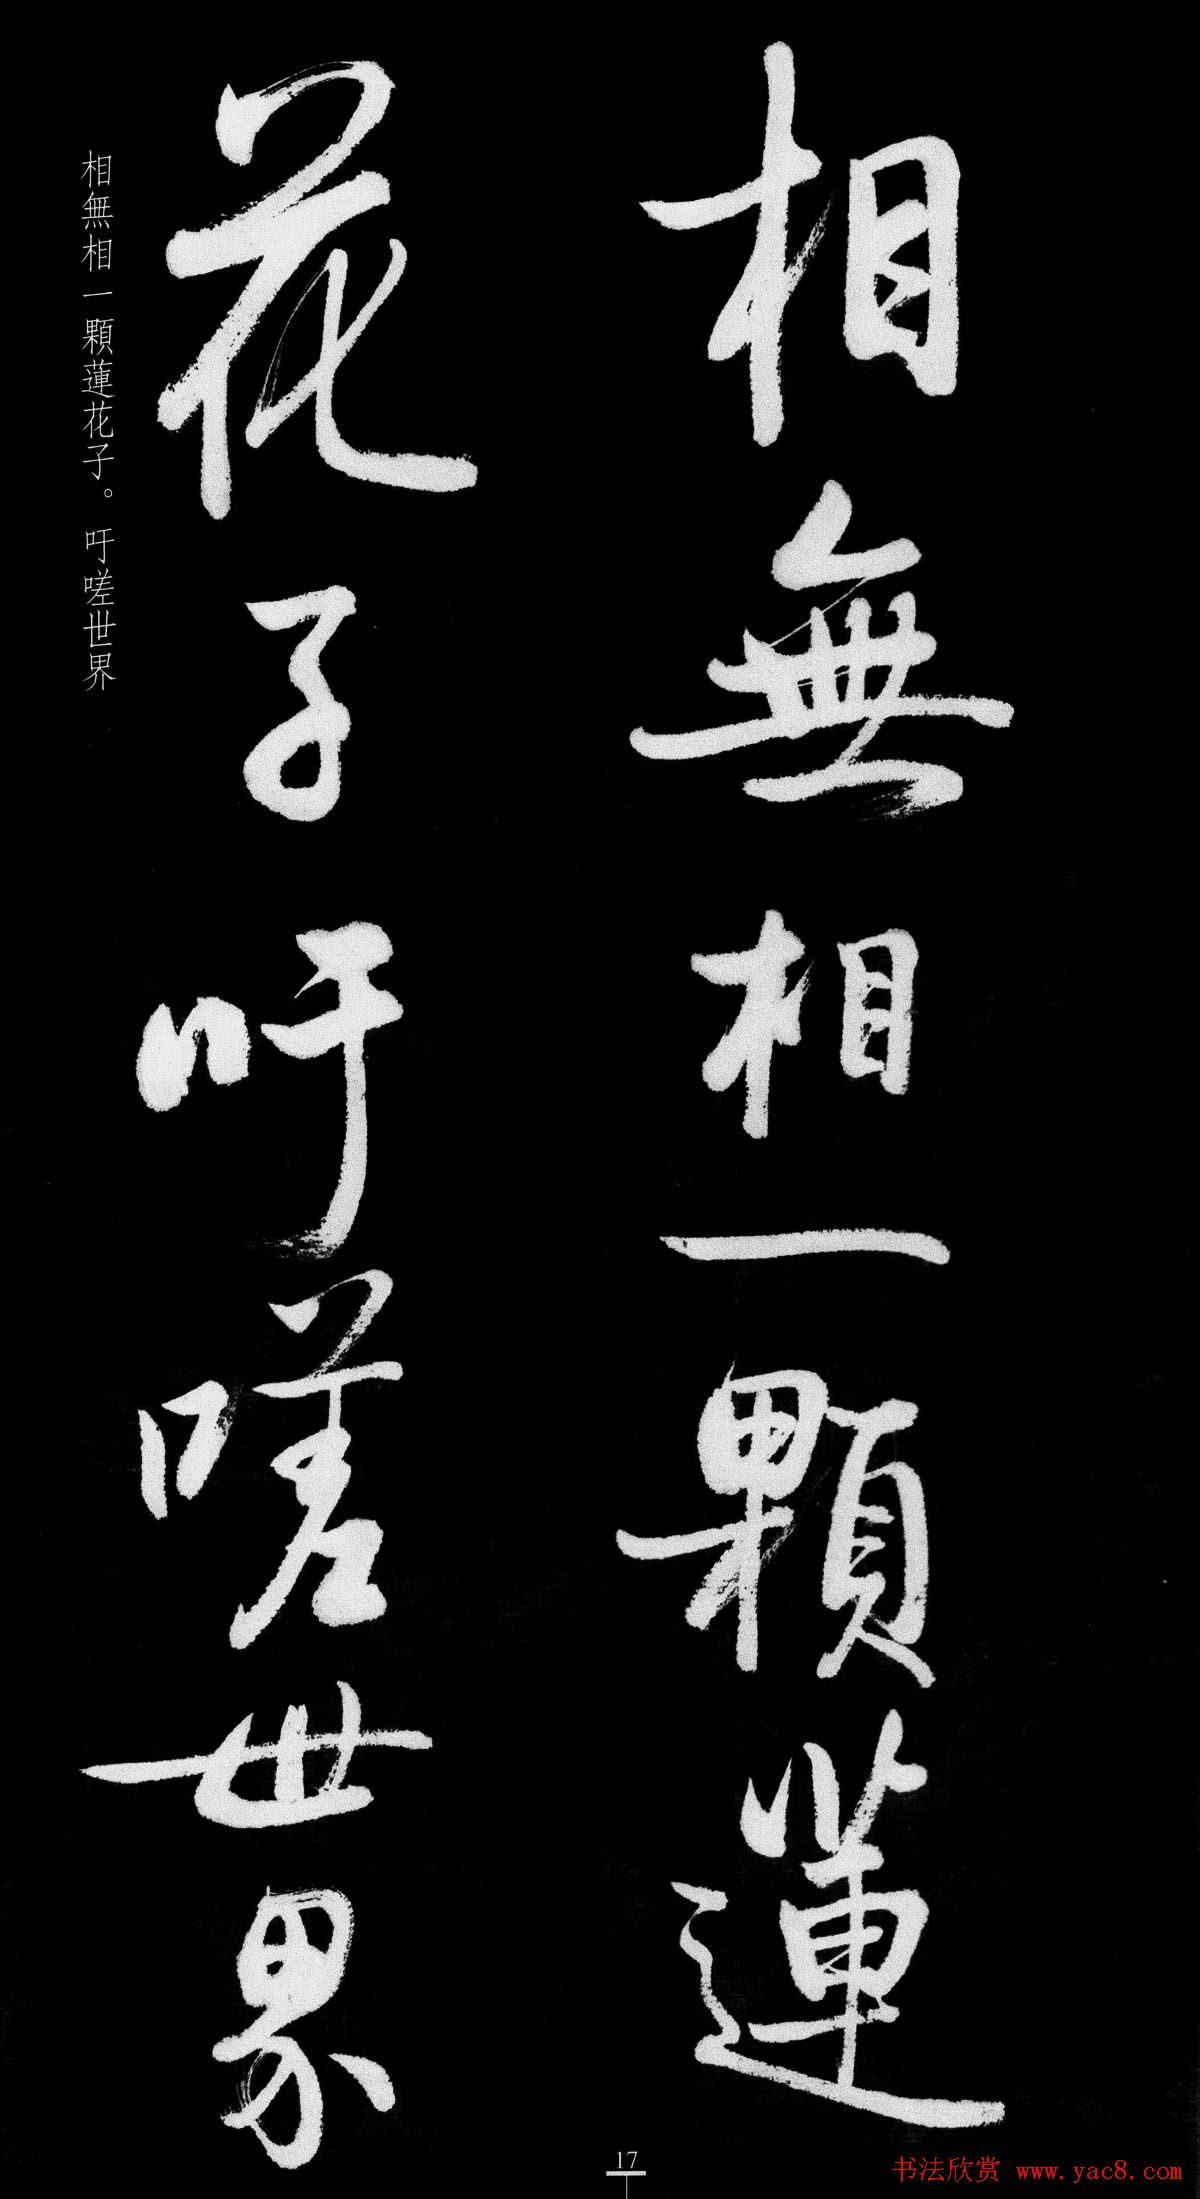 相無相一顆蓮
花子吁嗟世界
相無相一顆蓮花子。吁嗟世界
17
书法欣赏 www.yac8.com